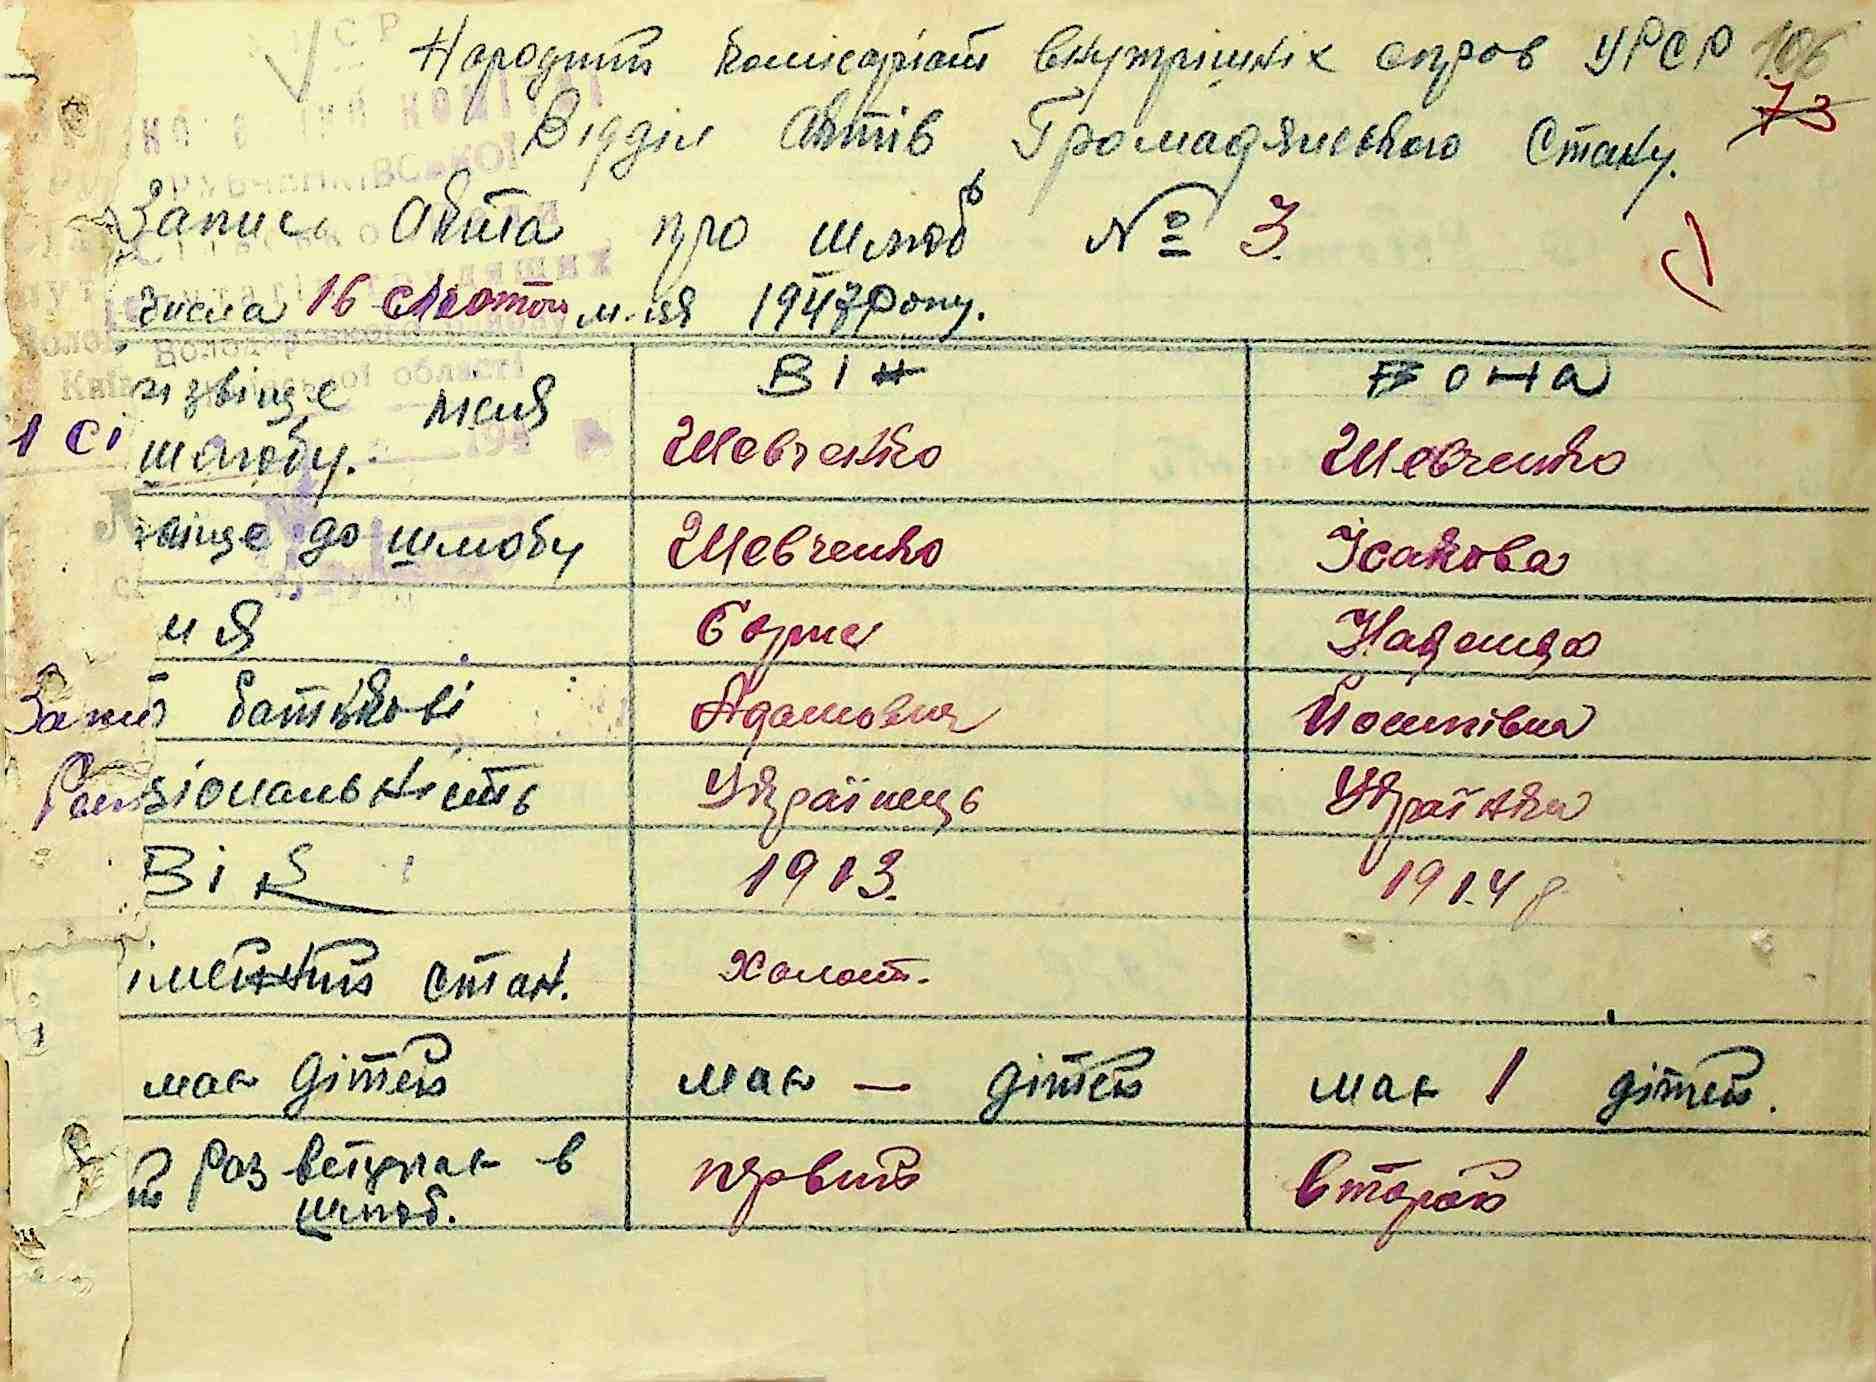 Народний комісаріат внутрішніх справ УРСР 106
73
Відділ Актів Громадянського Стану.
Запись Акта про шлюбь № 3.
Числа 16 м-ця 1947 Року.
ВІН ВОНА
ізвіще після шлюбу. Шевченко Шевченко
1 сі
віще до шлюбу Шевченко Ісакова
мя Борис Надежда
батькові Адамович Йосипівна
Запис
ціональність Українець Українка
Вік 1913. 1914 р
імейний стан. Холост.
має дітей має — дітей має 1 дітей.
й раз вступає в шлюб. первий второй